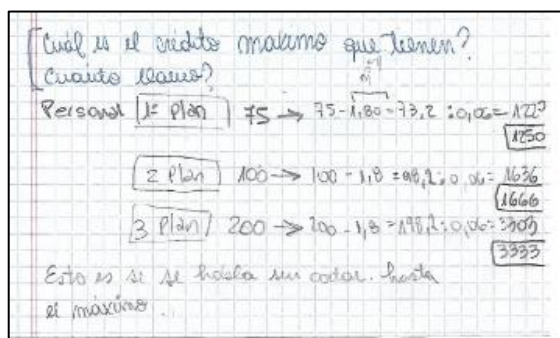 Cuál es el crédito maximo que tienen?
Cuánto llamo?
Personal 1º Plan 75 → 75-1,80=73,2:0,06=1220
1250
2 Plan 100 → 100-1,8=98,2:0,06=1636
1666
3 Plan 200 → 200-1,8=198,2:0,06=3303
3333
Esto es si se habla sin cortar. hasta
el máximo.